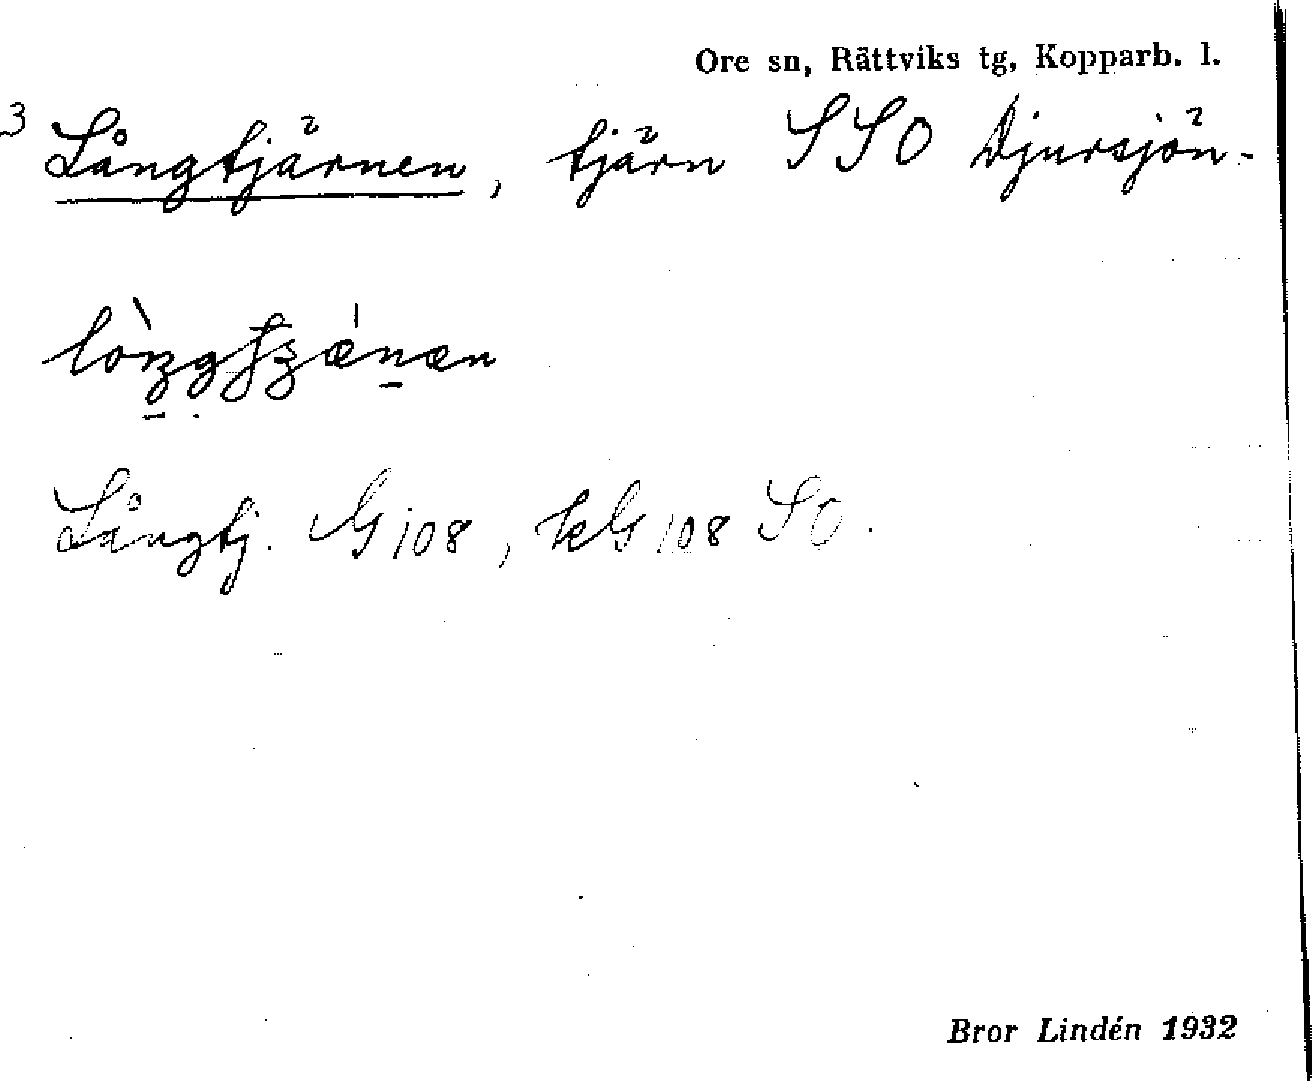 Ore sn, Rättviks tg, Kopparb. l.
3
Långtjärnen, tjärn SSO Djursjön.
Långtj. G 108, kG 108 SO.
Bror Lindén 1932